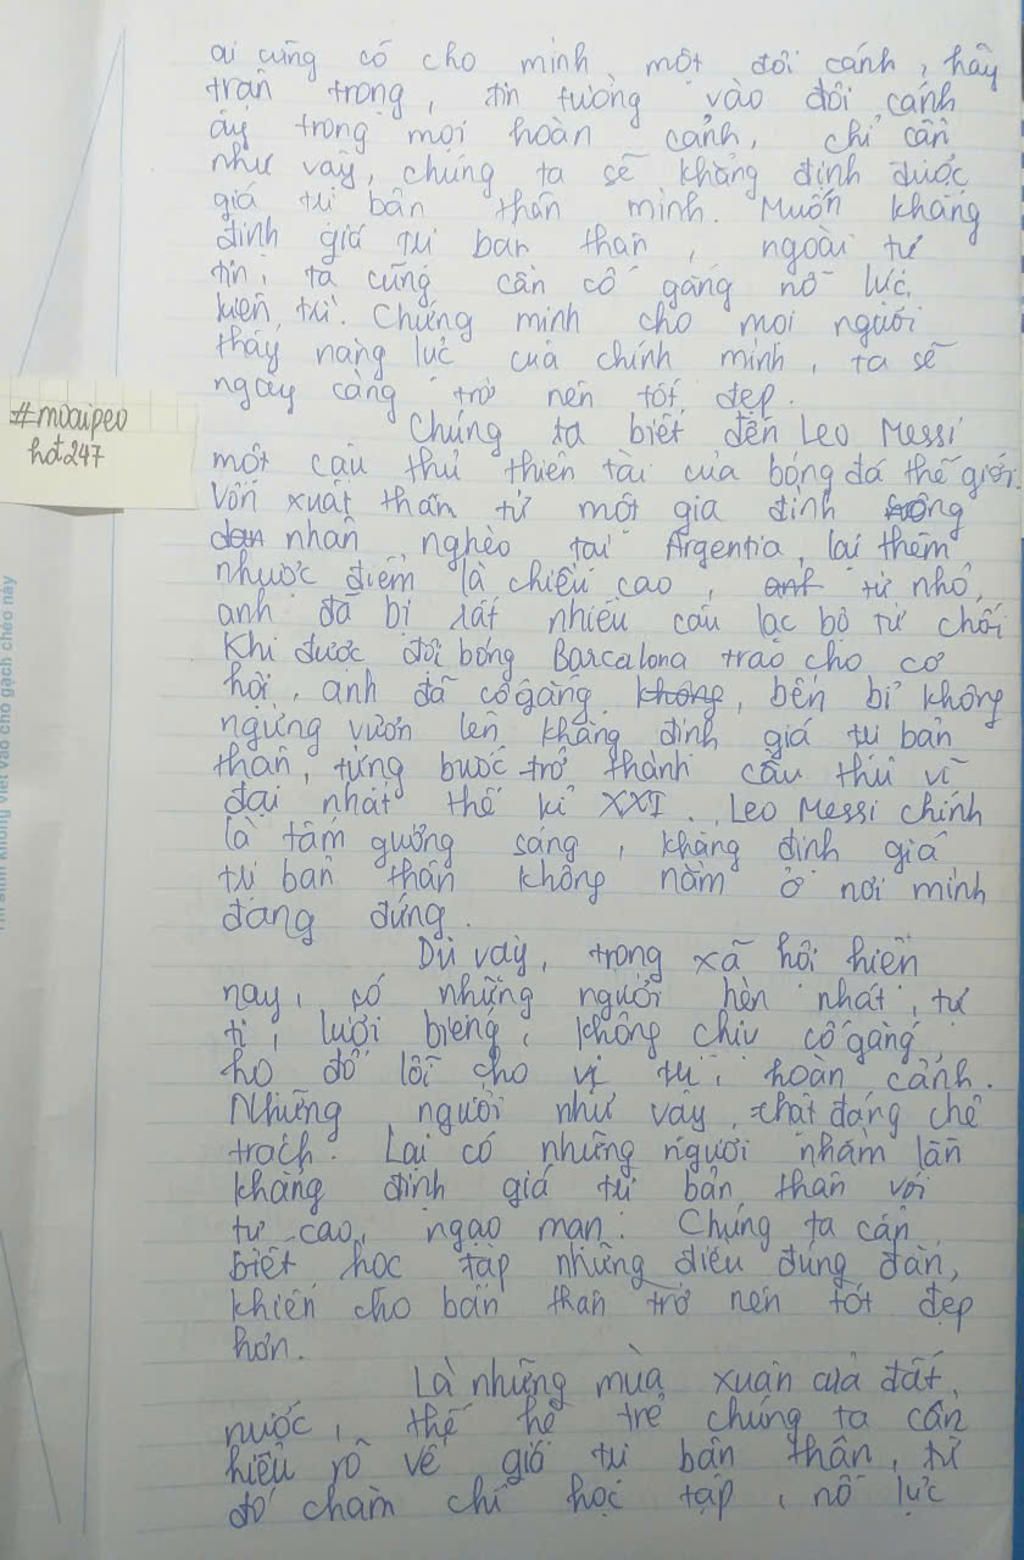 ai cũng có cho mình một đôi cánh, hãy
trân trọng, tin tưởng vào đôi cánh
ấy trong mọi hoàn cảnh, chỉ cần
như vậy, chúng ta sẽ khẳng định được
giá trị bản thân mình. Muốn khẳng
định giá trị bản thân, ngoài tự
tin, ta cũng cần cố gắng nỗ lực,
kiên trì. Chứng minh cho mọi người
thấy năng lực của chính mình, ta sẽ
ngày càng trở nên tốt đẹp.
#moaipeo
hot247
Chúng ta biết đến Leo Messi
một cầu thủ thiên tài của bóng đá thế giới.
Vốn xuất thân từ một gia đình công
nhân nghèo tại Argentia, lại thêm
nhược điểm là chiều cao, anh từ nhỏ,
anh đã bị rất nhiều câu lạc bộ từ chối
Khi được đội bóng Barcalona trao cho cơ
hội, anh đã cố gắng không, bền bỉ không
ngừng vươn lên khẳng định giá trị bản
thân, từng bước trở thành cầu thủ vĩ
đại nhất thế kỉ XXI. Leo Messi chính
là tấm gương sáng, khẳng định giá
trị bản thân không nằm ở nơi mình
đang đứng.
Dù vậy, trong xã hội hiện
nay, có những người hèn nhát, tự
ti, lười biếng, không chịu cố gắng,
họ đổ lỗi cho vị trí, hoàn cảnh.
Những người như vậy thật đáng chê
trách. Lại có những người nhầm lẫn
khẳng định giá trị bản thân với
tự cao, ngạo mạn. Chúng ta cần
biết học tập những điều đúng đắn,
khiến cho bản thân trở nên tốt đẹp
hơn.
Là những mùa xuân của đất
nước, thế hệ trẻ chúng ta cần
hiểu rõ về giá trị bản thân, từ
đó chăm chỉ học tập, nỗ lực
không viết vào chỗ gạch chéo này